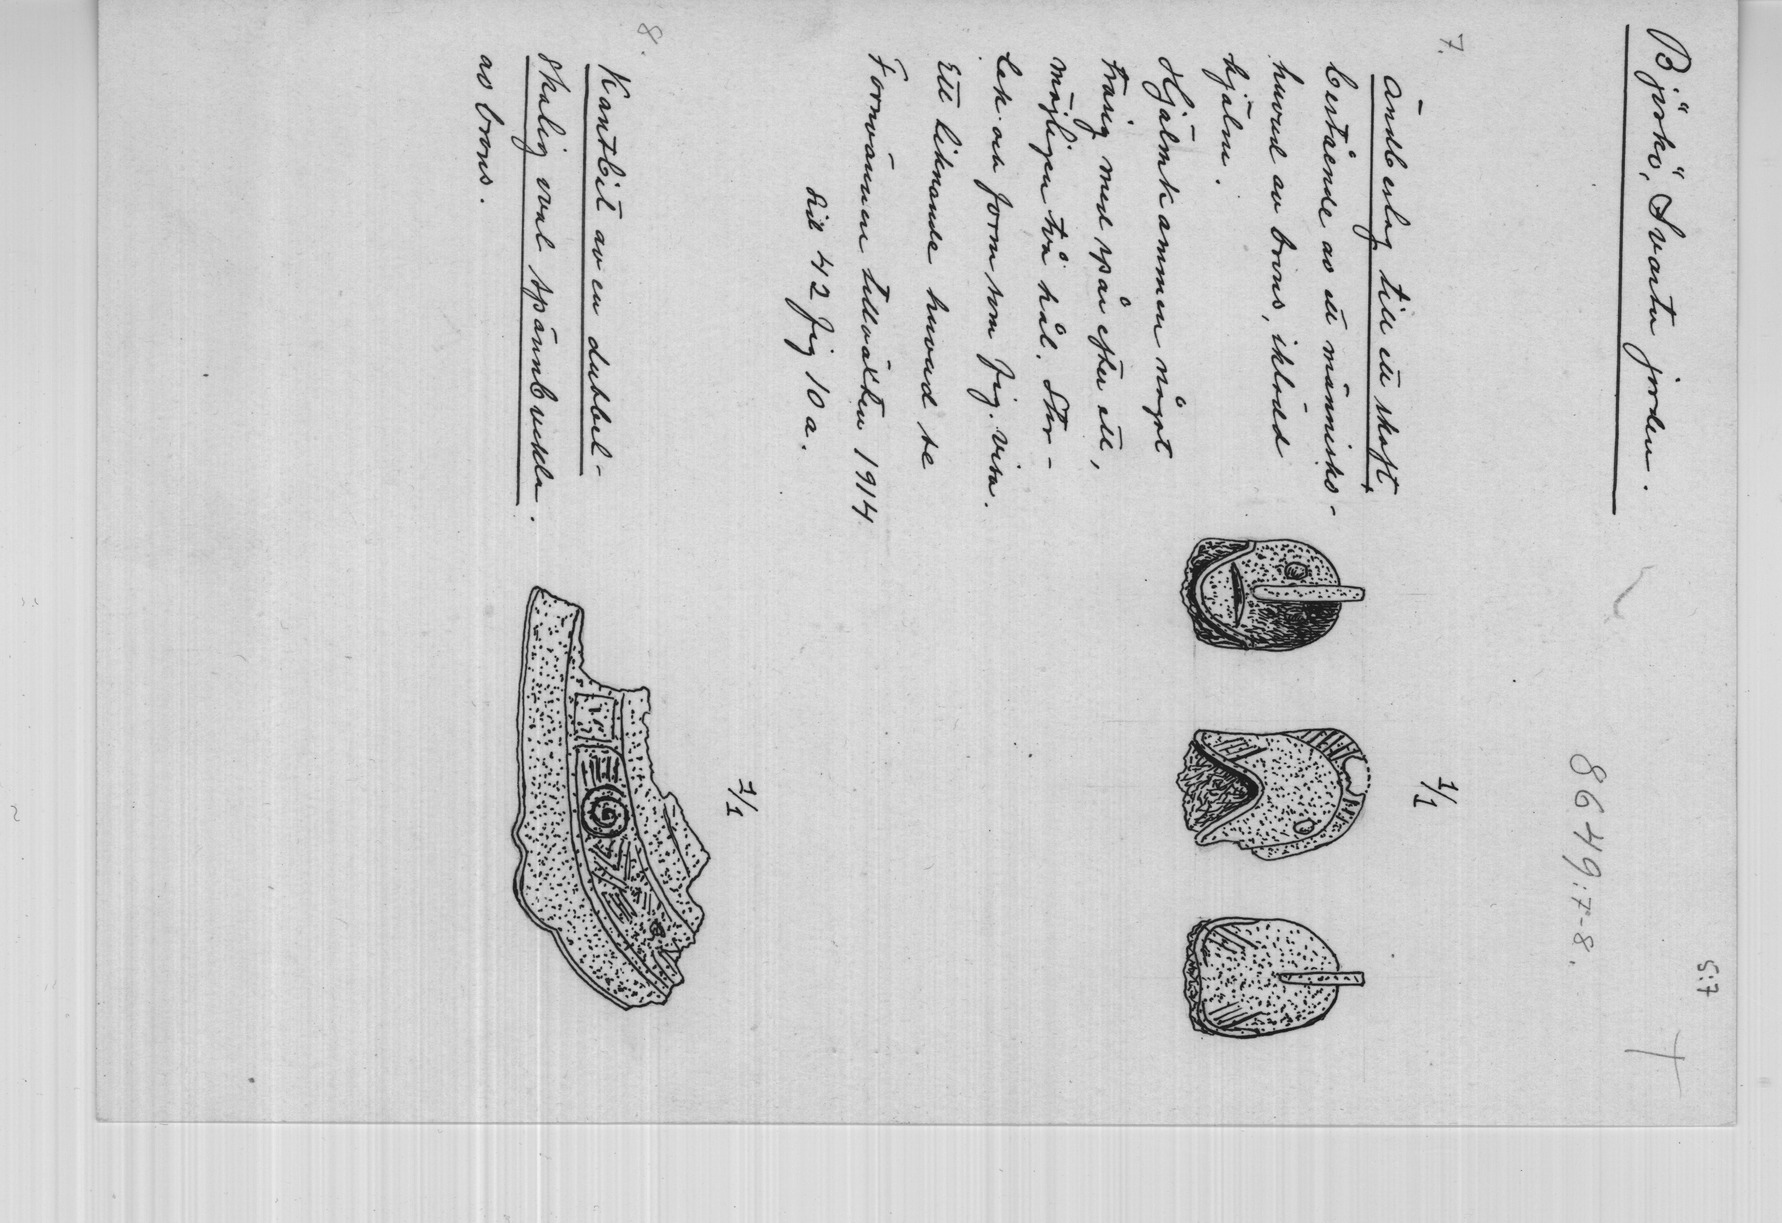 5:7
Björkö, Svarta jorden.
86498:7-8.
7.
Ändbeslag till ett skaft,
bestående av ett människo-
huvud av brons, iklädd
hjälm.
Hjälmkammen något
trasig med spår efter ett,
möjligen två hål. Stor-
lek och form som fig. visa.
Ett liknande huvud se
Fornvännen tillväxten 1914
sid 42 fig 10 a.
1/1
8.
Kantbit av en dubbel-
skalig oval spännbuckla.
av brons.
1/1